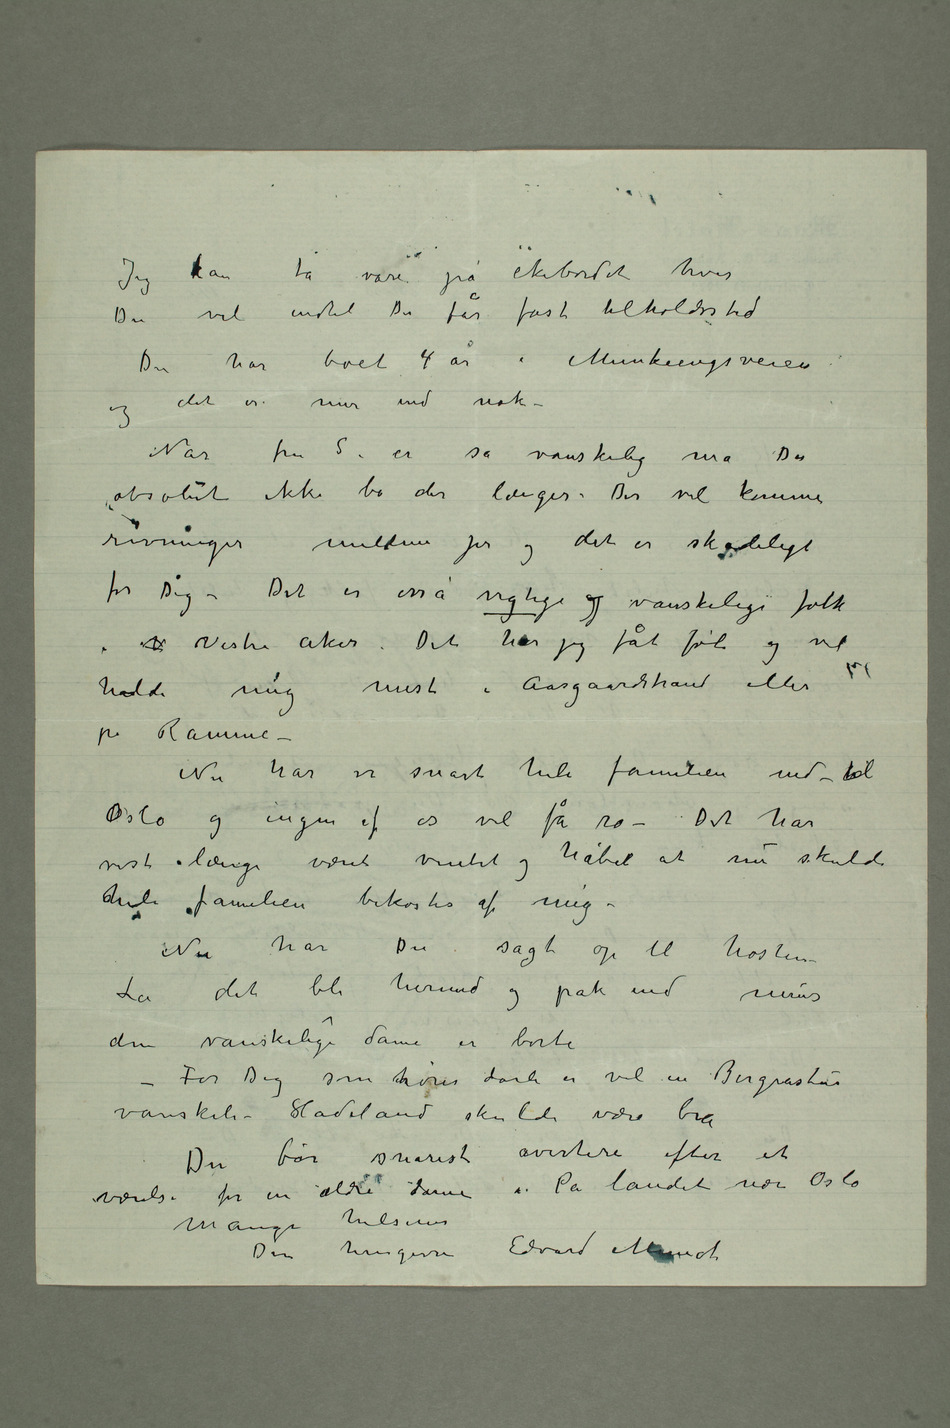 Jeg kan ta vare på ekebordet hvis
Du vil indtil Du får fast tilholdssted
Du har boet 4 år i Munkeengsveien
og det er mer end nok –
Når fru S. er så vanskelig må Du
absolut ikke bo der længer. Der vil komme
rivninger mellem jer og det er skadeligt
for Dig – Det er osså vigtige og vanskelige folk
i Vestre Aker. Det har jeg fåt føle og vil
holde mig mest i Aasgaardstrand eller
på Ramme –
Nu har vi snart hele familien ind til
Oslo og ingen af os vil få ro – Det har
vist længe været ventet og håbet at nu skulde
hele familien bekostes af mig –
Nu har Du sagt op til høsten –
La det bli hermed og pak ind mens
den vanskelige dame er borte
– For Dig som hører dårli er vel en
vanskeli – Hadeland skulde være bra
Du bør snarest avertere efter et
værelse for en ældre dame i. På landet nær Oslo
Mange hilsener
Din hengivne Edvard Munch